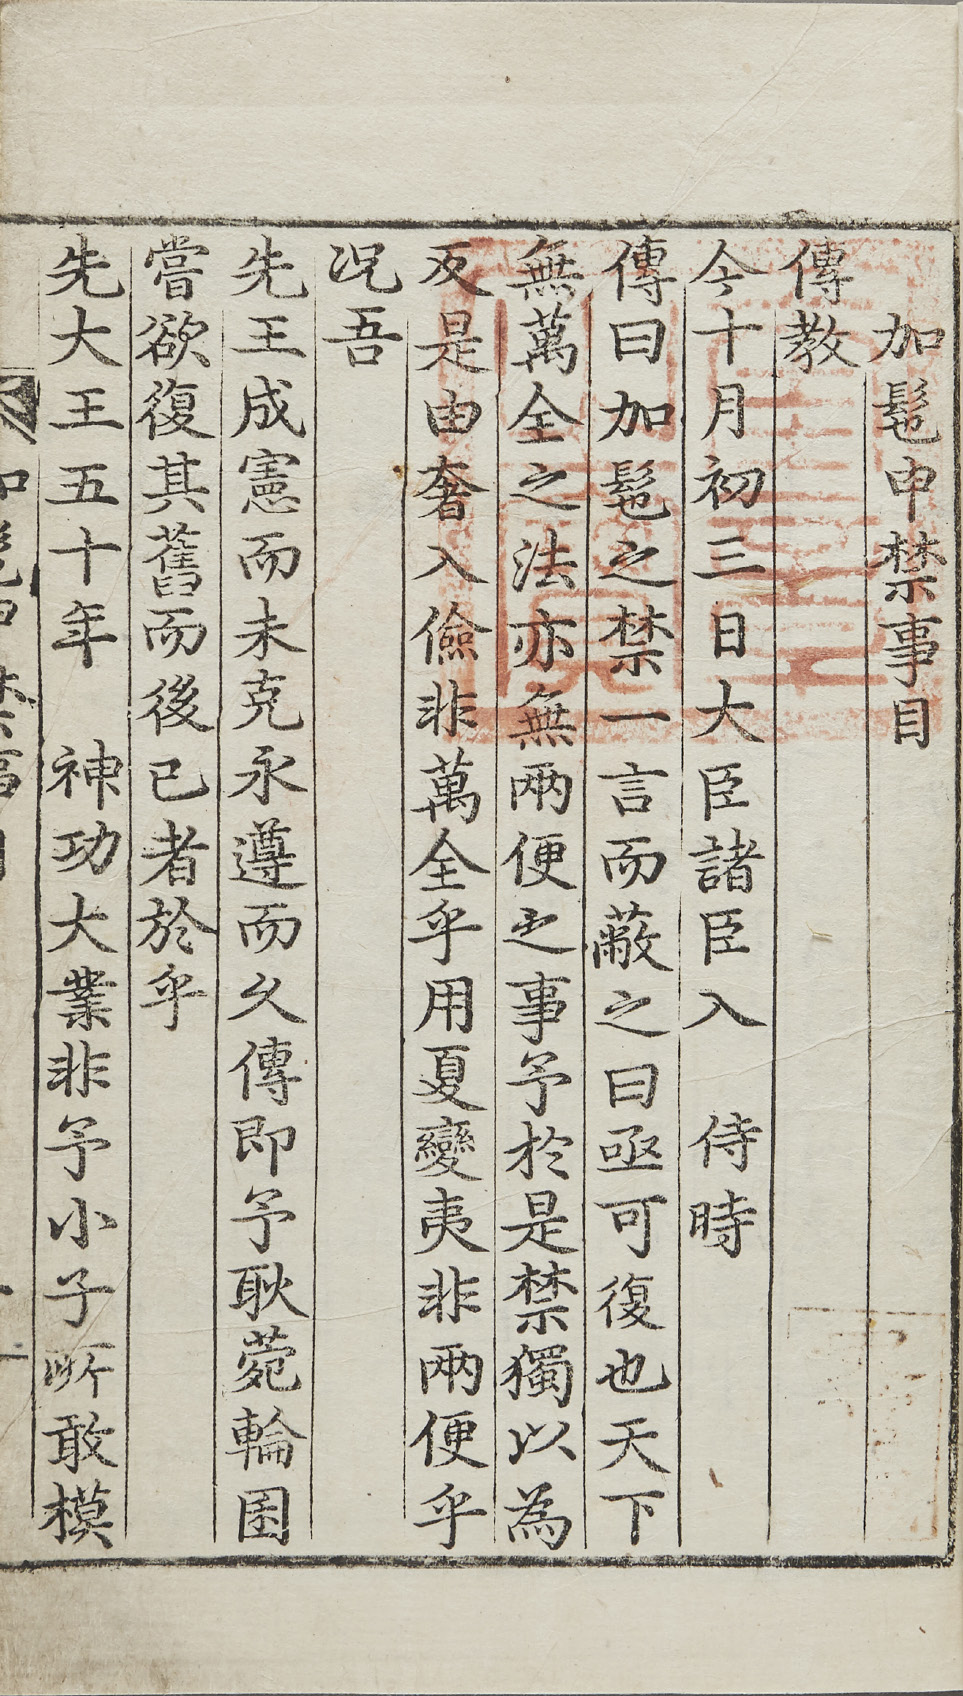 加髢申禁事目
傳教
今十月初三日大臣諸臣入 侍時
傳曰加髢之禁一言而蔽之曰亟可復也天下
無萬全之法亦無兩便之事予於是禁獨以為
反是由奢入儉非萬全乎用夏變夷非兩便乎
況吾
先王成憲而未克永遵而久傳即予耿菀輪囷
嘗欲復其舊而後已者於乎
先大王五十年 神功大業非予小子所敢模